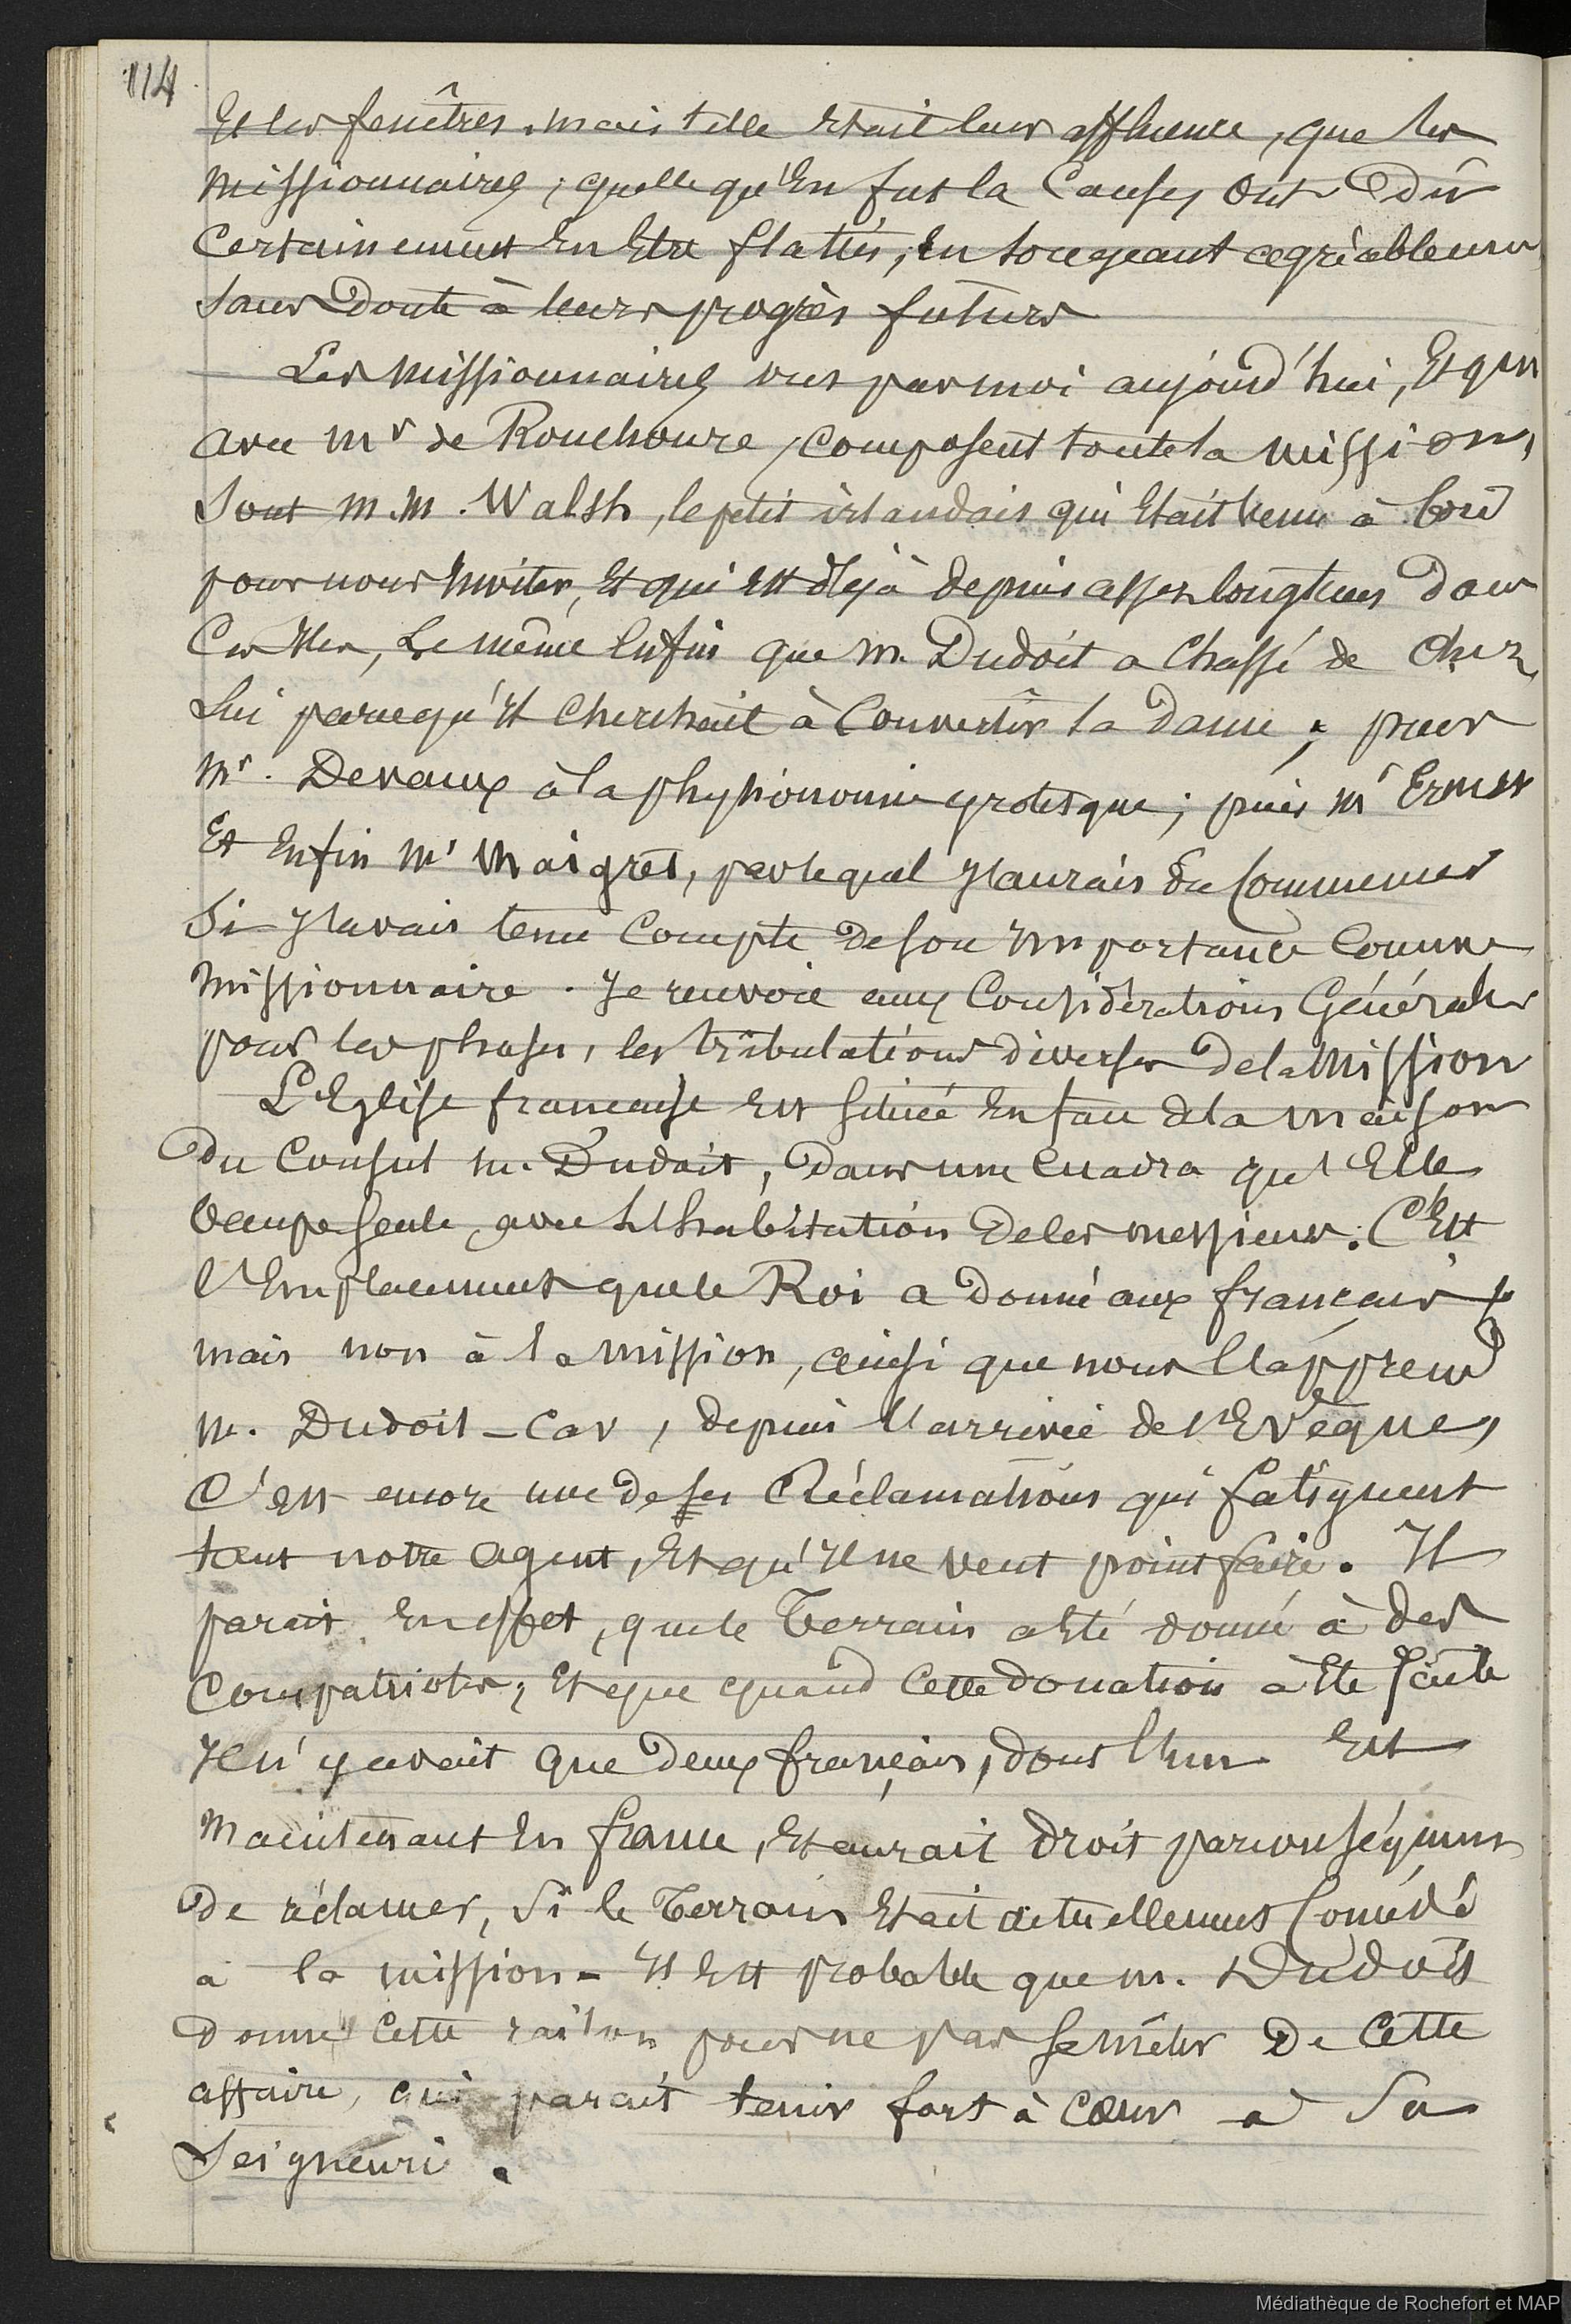 114
Et les fenêtres. mais telle était leur affluence, que les
missionnaires, quelle qu'en fut la Cause, ont dû
Certainement en Etre flattés, en songeant agréablement
sans Doute à leurs progrès futurs
Les missionnaires vus par moi aujourd'hui, Et qui
avec Mr de Rouchouze, composent toute la mission,
Sont M.M. Walsh, le petit irlandais qui était venu à bord
pour nous inviter, Et qui est déjà depuis assez longtems dans
Ces Iles, Le même Enfin que M. Dudoit a Chassé de chez
Lui parcequ'il Cherchait à Convertir sa Dame ; puis
Mr. Devaux à la physionomie grotesque ; puis Mr Ernest
Et Enfin Mr Maigret, par lequel J'aurais du Commencer
Si J'avais tenu Compte de son Importance Comme
Missionnaire. Je renvoie aux Considérations Générales
pour les phases, les tribulations diverses de la Mission
L'Eglise francaise Est Située En face de la maison
Du Consul M. Dudoit, Dans une Cuadra qu'Elle
Occupe seule, avec l'habitation de ces messieurs. C'Est
l'Emplacement que le Roi a Donné aux français
mais non à la mission, ainsi que nous l'apprend
M. Dudoit - Car, depuis l'arrivée de l'Evêque,
C'est encore une de ses Réclamations qui fatiguent
tant notre agent, Et qu'Il ne veut point faire. Il
parait En effet, que le Terrain a été donné à des
Compatriotes, Et que quand Cette donation a Ete faite
Il n'y avait que Deux français, dont l'un Est
Maintenant En france, Et aurait Droit par conséquent
De réclamer, Si le Terrain Etait actuellement Concédé
à la mission - Il Est probable que M. Dudoit
Donne Cette raison pour ne pas se mêler De Cette
affaire, qui parait tenir fort à Cœur à Sa
Seigneurie.
Médiathèque de Rochefort et MAP